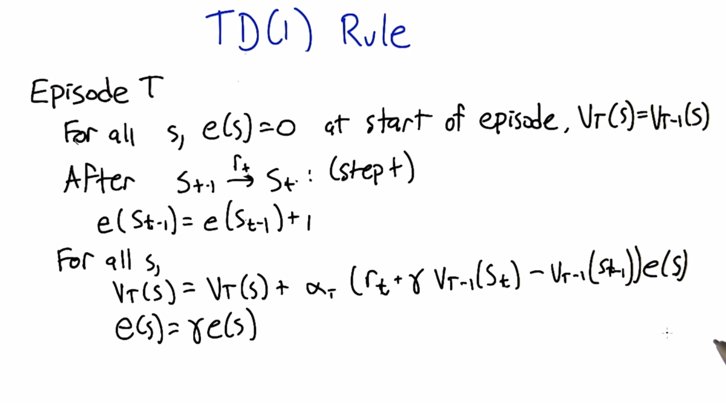 TD(1) Rule
Episode T
For all s, e(s)=0 at start of episode, V_T(s)=V_{T-1}(s)
After S_{t-1} →^{r_t} S_t : (step t)
e(S_{t-1})= e(S_{t-1})+1
For all s,
V_T(s) = V_T(s)+ α_T (r_t + γ V_{T-1}(S_t) − V_{T-1}(S_{t-1}))e(s)
e(s)= γe(s)